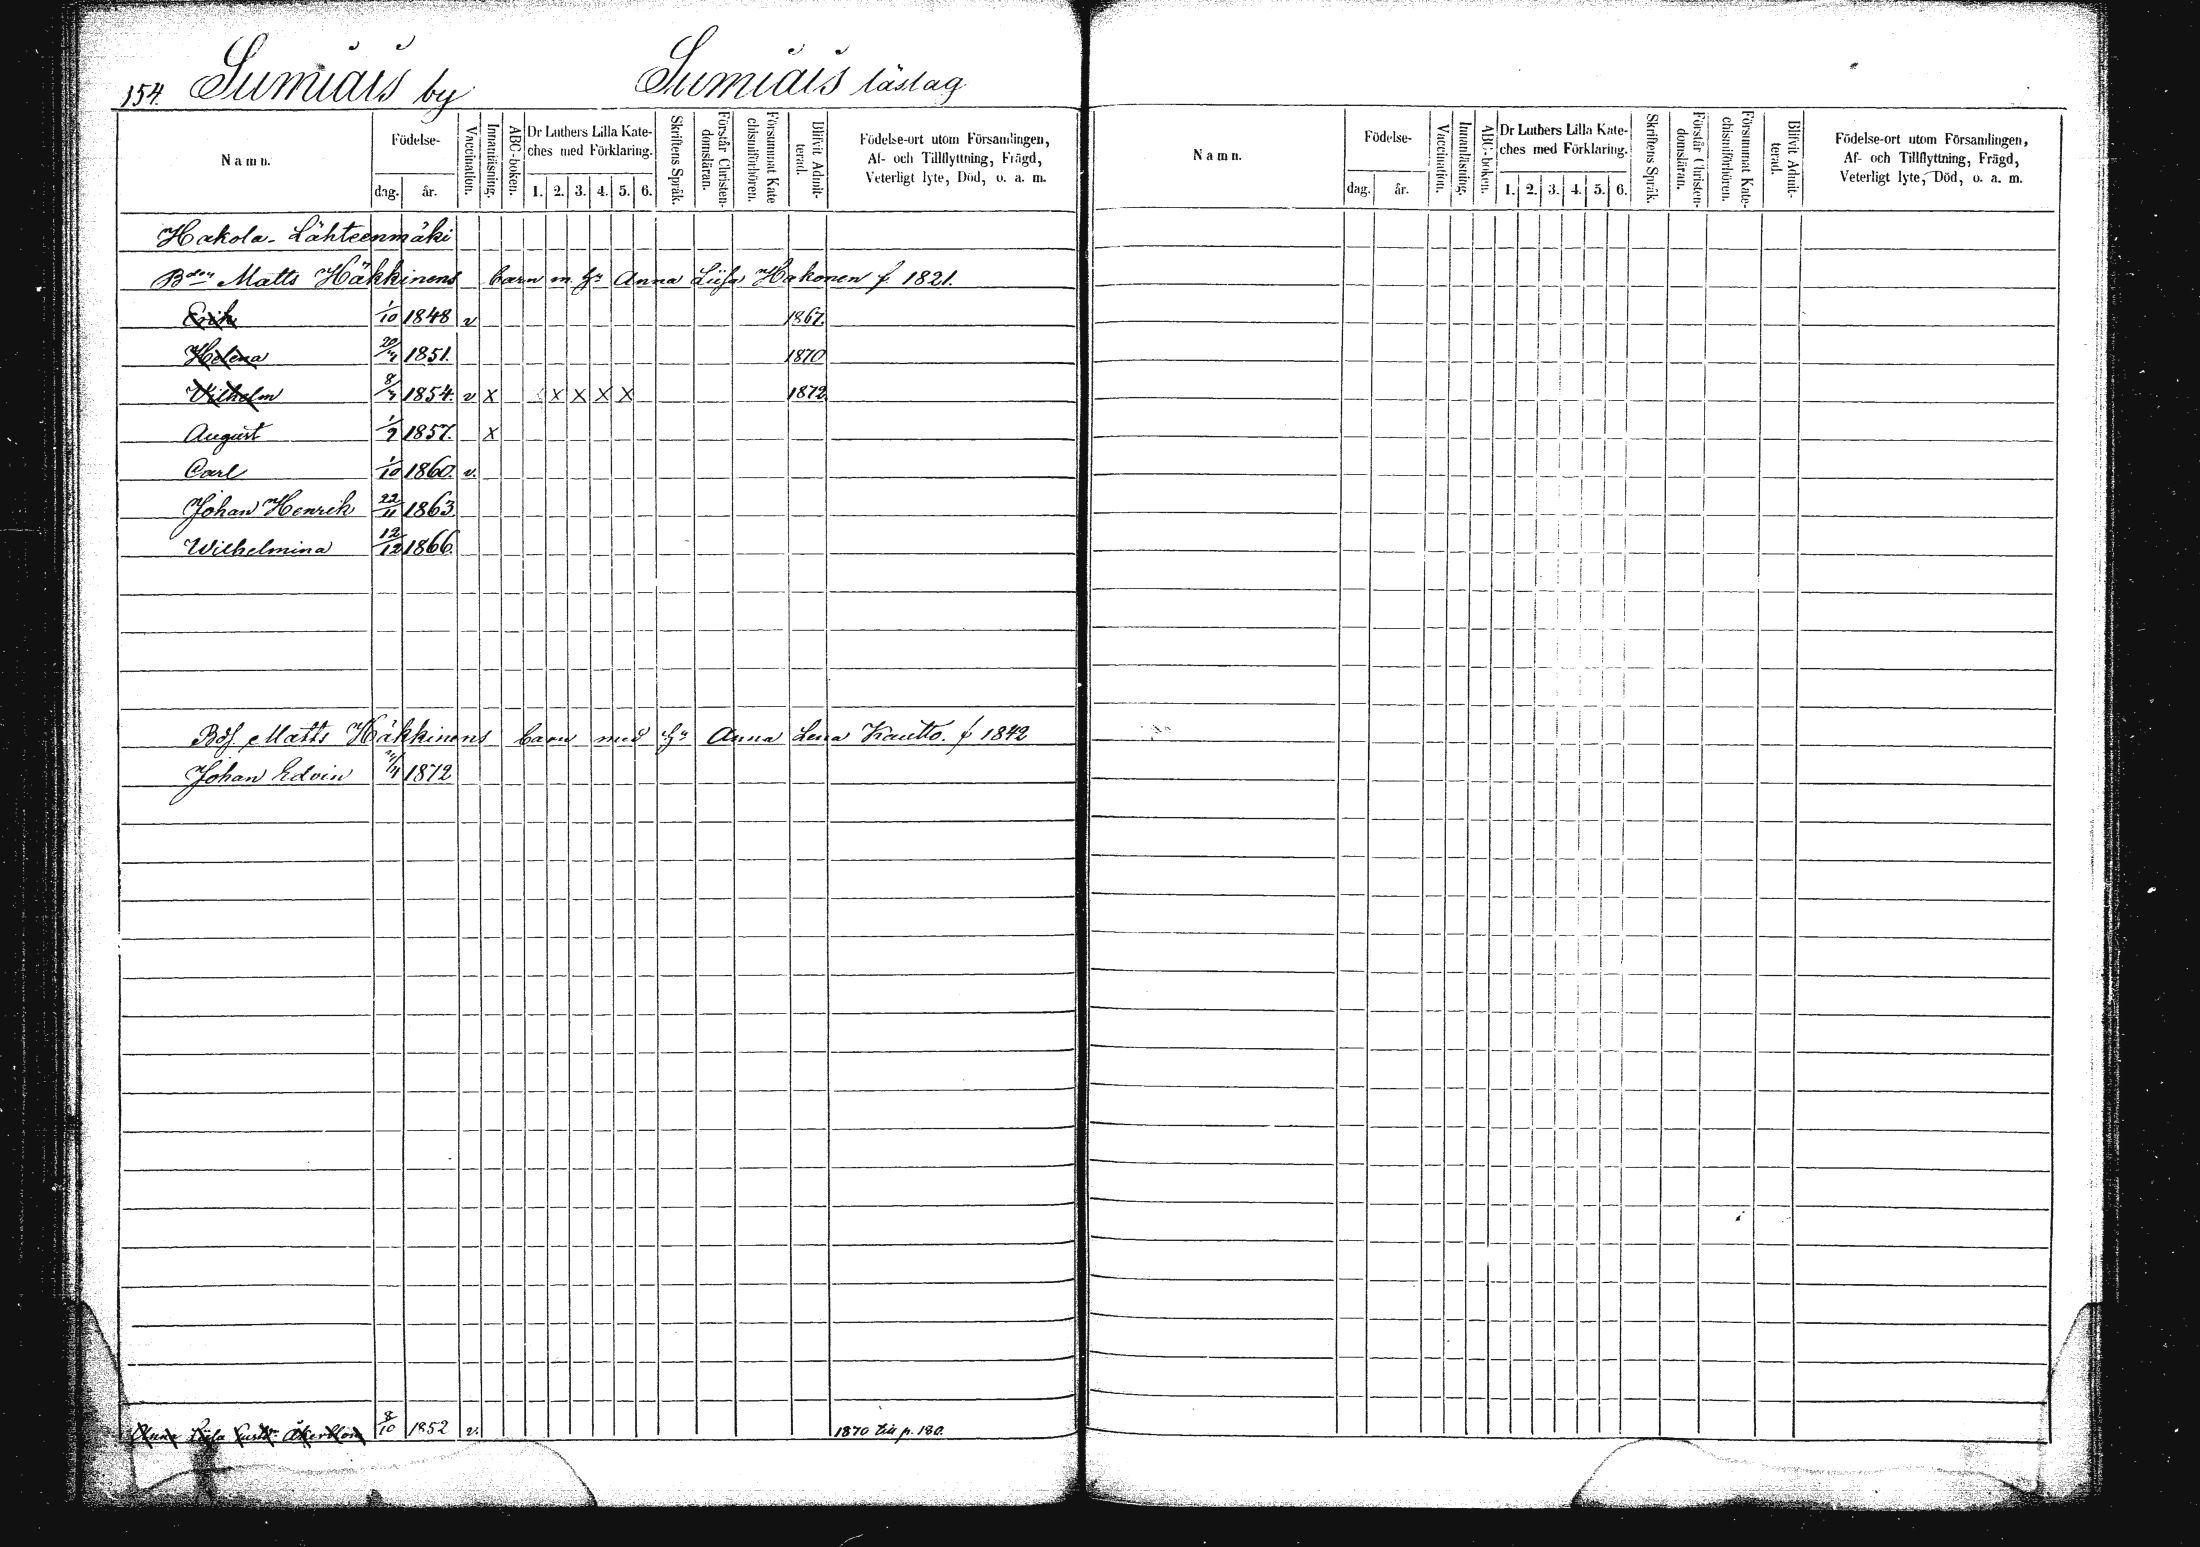 154. Sumiais by Sumiais läslag
Namn. Födelse- dag. år. Vaccination. Innanläsning. ABC-boken. Dr Luthers Lilla Kate-ches med Förklaring. 1. 2. 3. 4. 5. 6. Skriftens Språk. Förstår Christen-domsläran. Försummat Kate chismiförhören. Blifvit Admit-terad. Födelse-ort utom Församlingen, Af- och Tillflyttning, Frägd, Veterligt lyte, Död, o. a. m.
Hakola-Lähteenmäki
Bdn Matts Häkkinens barn m. hu Anna Liisa Hakonen f. 1821.
Erik 1/10 1848 v 1867.
Helena 20/4 1851. 1870
Vilhelm 8/4 1854. v x x x x x 1872
August 1/9 1857. x
Carl 1/10 1860. v.
Johan Henrik 22/11 1863
Wilhelmina 12/12 1866.
Matts Häkkinens barn med hu Anna Lena Kautto. f 1842
Johan Edvin /4 1872
Anna 8/10 1852 v. 1870 till p. 180.
Namn. Födelse- dag. år. Vaccination. Innanläsning. ABC-boken. Dr Luthers Lilla Kate-ches med Förklaring. 1. 2. 3. 4. 5. 6. Skriftens Språk. Förstår Christen-domsläran. Försummat Kate-chismiförhören. Blifvit Admit-terad. Födelse-ort utom Församlingen, Af- och Tillflyttning, Frägd, Veterligt lyte, Död, o. a. m.